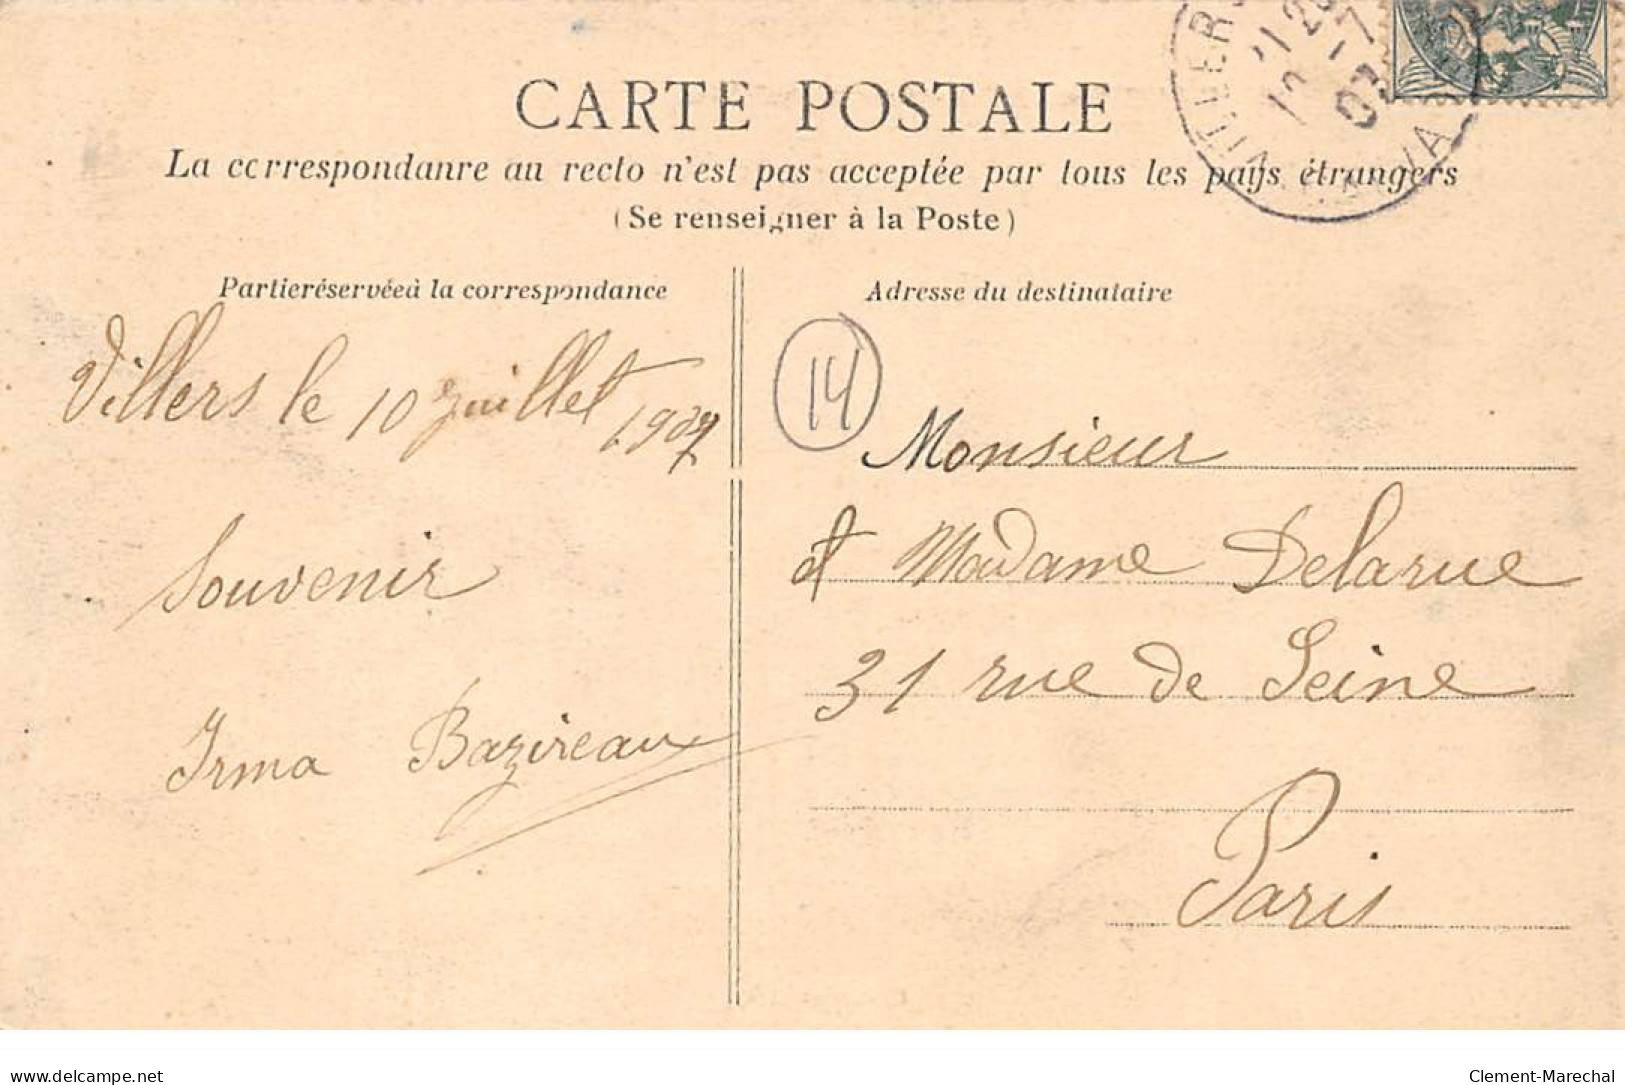 CARTE POSTALE
La correspondanre au recto n'est pas acceptée par tous les pays étrangers
(Se renseigner à la Poste)
Partieréservéeà la correspondance
Adresse du destinataire
VILLERS
21 20
10 - 7
07
Villers le 10 juillet 1907
14
Monsieur
et Madame Delarue
Souvenir
31 rue de Seine
Irma Bazireau
Paris
www.delcampe.net
Clement-Marechal